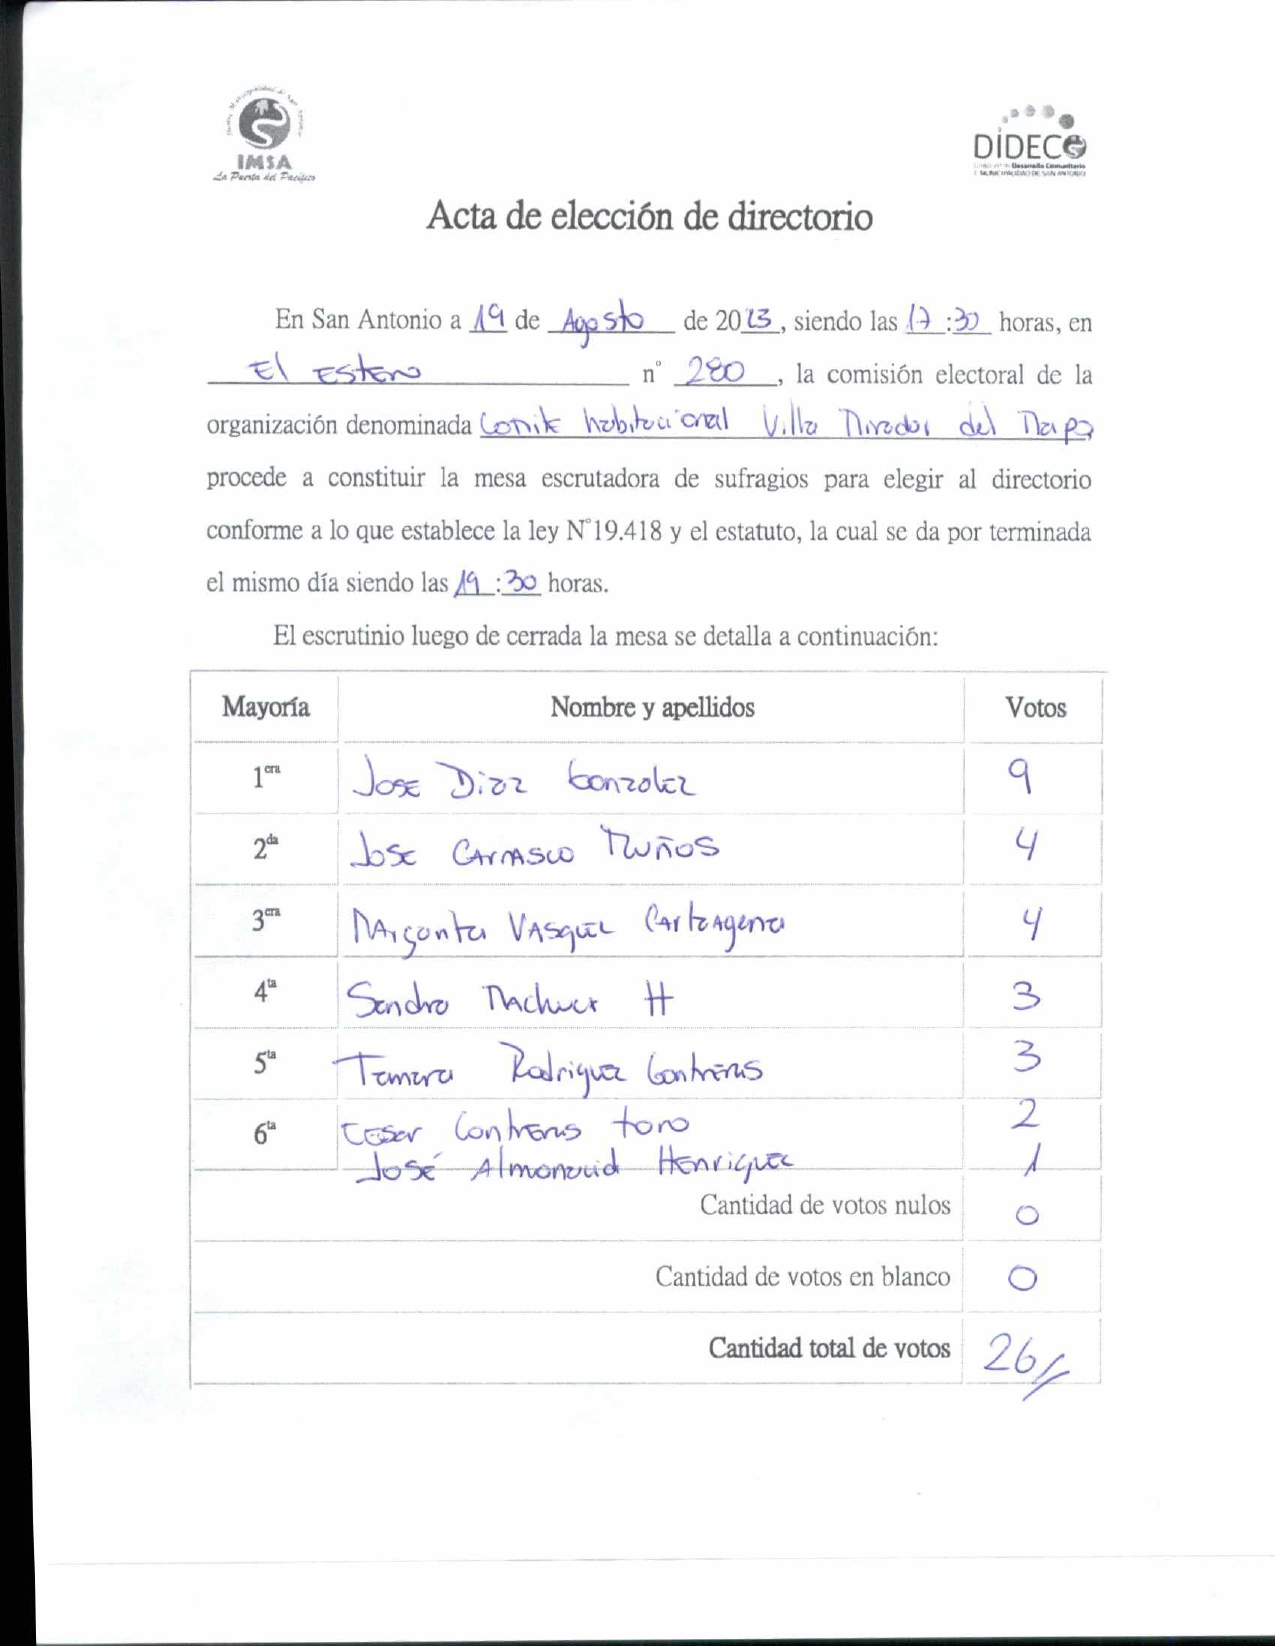 IMSA
La Puerta del Pacífico
DIDECO
Acta de elección de directorio
En San Antonio a 19 de Agosto de 2023, siendo las 17:30 horas, en
El Estero n° 280, la comisión electoral de la
organización denominada Comite habitacional Villa Mirador del Maipo
procede a constituir la mesa escrutadora de sufragios para elegir al directorio
conforme a lo que establece la ley N°19.418 y el estatuto, la cual se da por terminada
el mismo día siendo las 19:30 horas.
El escrutinio luego de cerrada la mesa se detalla a continuación:
Mayoría Nombre y apellidos Votos
1era Jose Diaz Gonzalez 9
2da Jose Carrasco Muños 4
3era Margarita Vasquez Cartagena 4
4ta Sandra Machuca H 3
5ta Tamara Rodriguez Contreras 3
6ta Cesar Contreras toro 2
José Almonacid Henriquez 1
Cantidad de votos nulos 0
Cantidad de votos en blanco 0
Cantidad total de votos 26